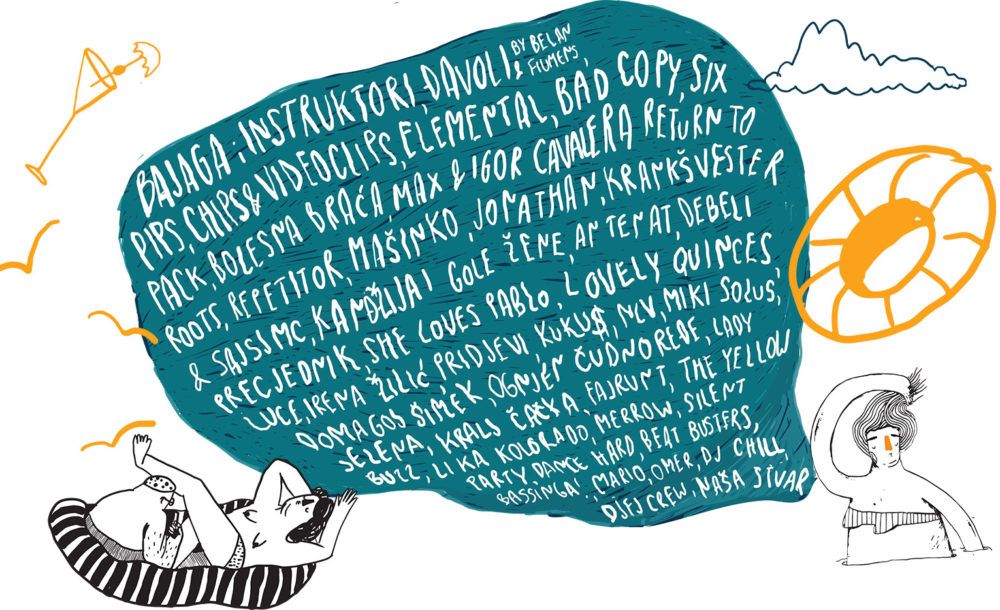 BAJAGA I INSTRUKTORI, ĐAVOLI BY BELAN & FIUMENS,
PIPS, CHIPS & VIDEOCLIPS, ELEMENTAL, BAD COPY, SIX
PACK, BOLESNA BRAĆA, MAX & IGOR CAVALERA RETURN TO
ROOTS, REPETITOR, MAŠINKO, JONATHAN, KRANKŠVESTER
& SAJSI MC, KANDŽIJA I GOLE ŽENE, ANTENAT, DEBELI
PRECJEDNIK, SHE LOVES PABLO, LOVELY QUINCES,
LUCE, IRENA ŽILIĆ, PRIDJEVI, KUKU$, NLV, MIKI SOLUS,
DOMAGOJ ŠIMEK, OGNJEN ČUDNOREĐE, LADY
SELENA, KRALJ ČAČKA, FAJRUNT, THE YELLOW
BUZZ, LIKA KOLORADO, MERROW, SILENT
PARTY, DANCE HARD, BEAT BUSTERS,
BASSINGA!, MARIO, OMER, DJ CHILL,
CREW, NAŠA STVAR